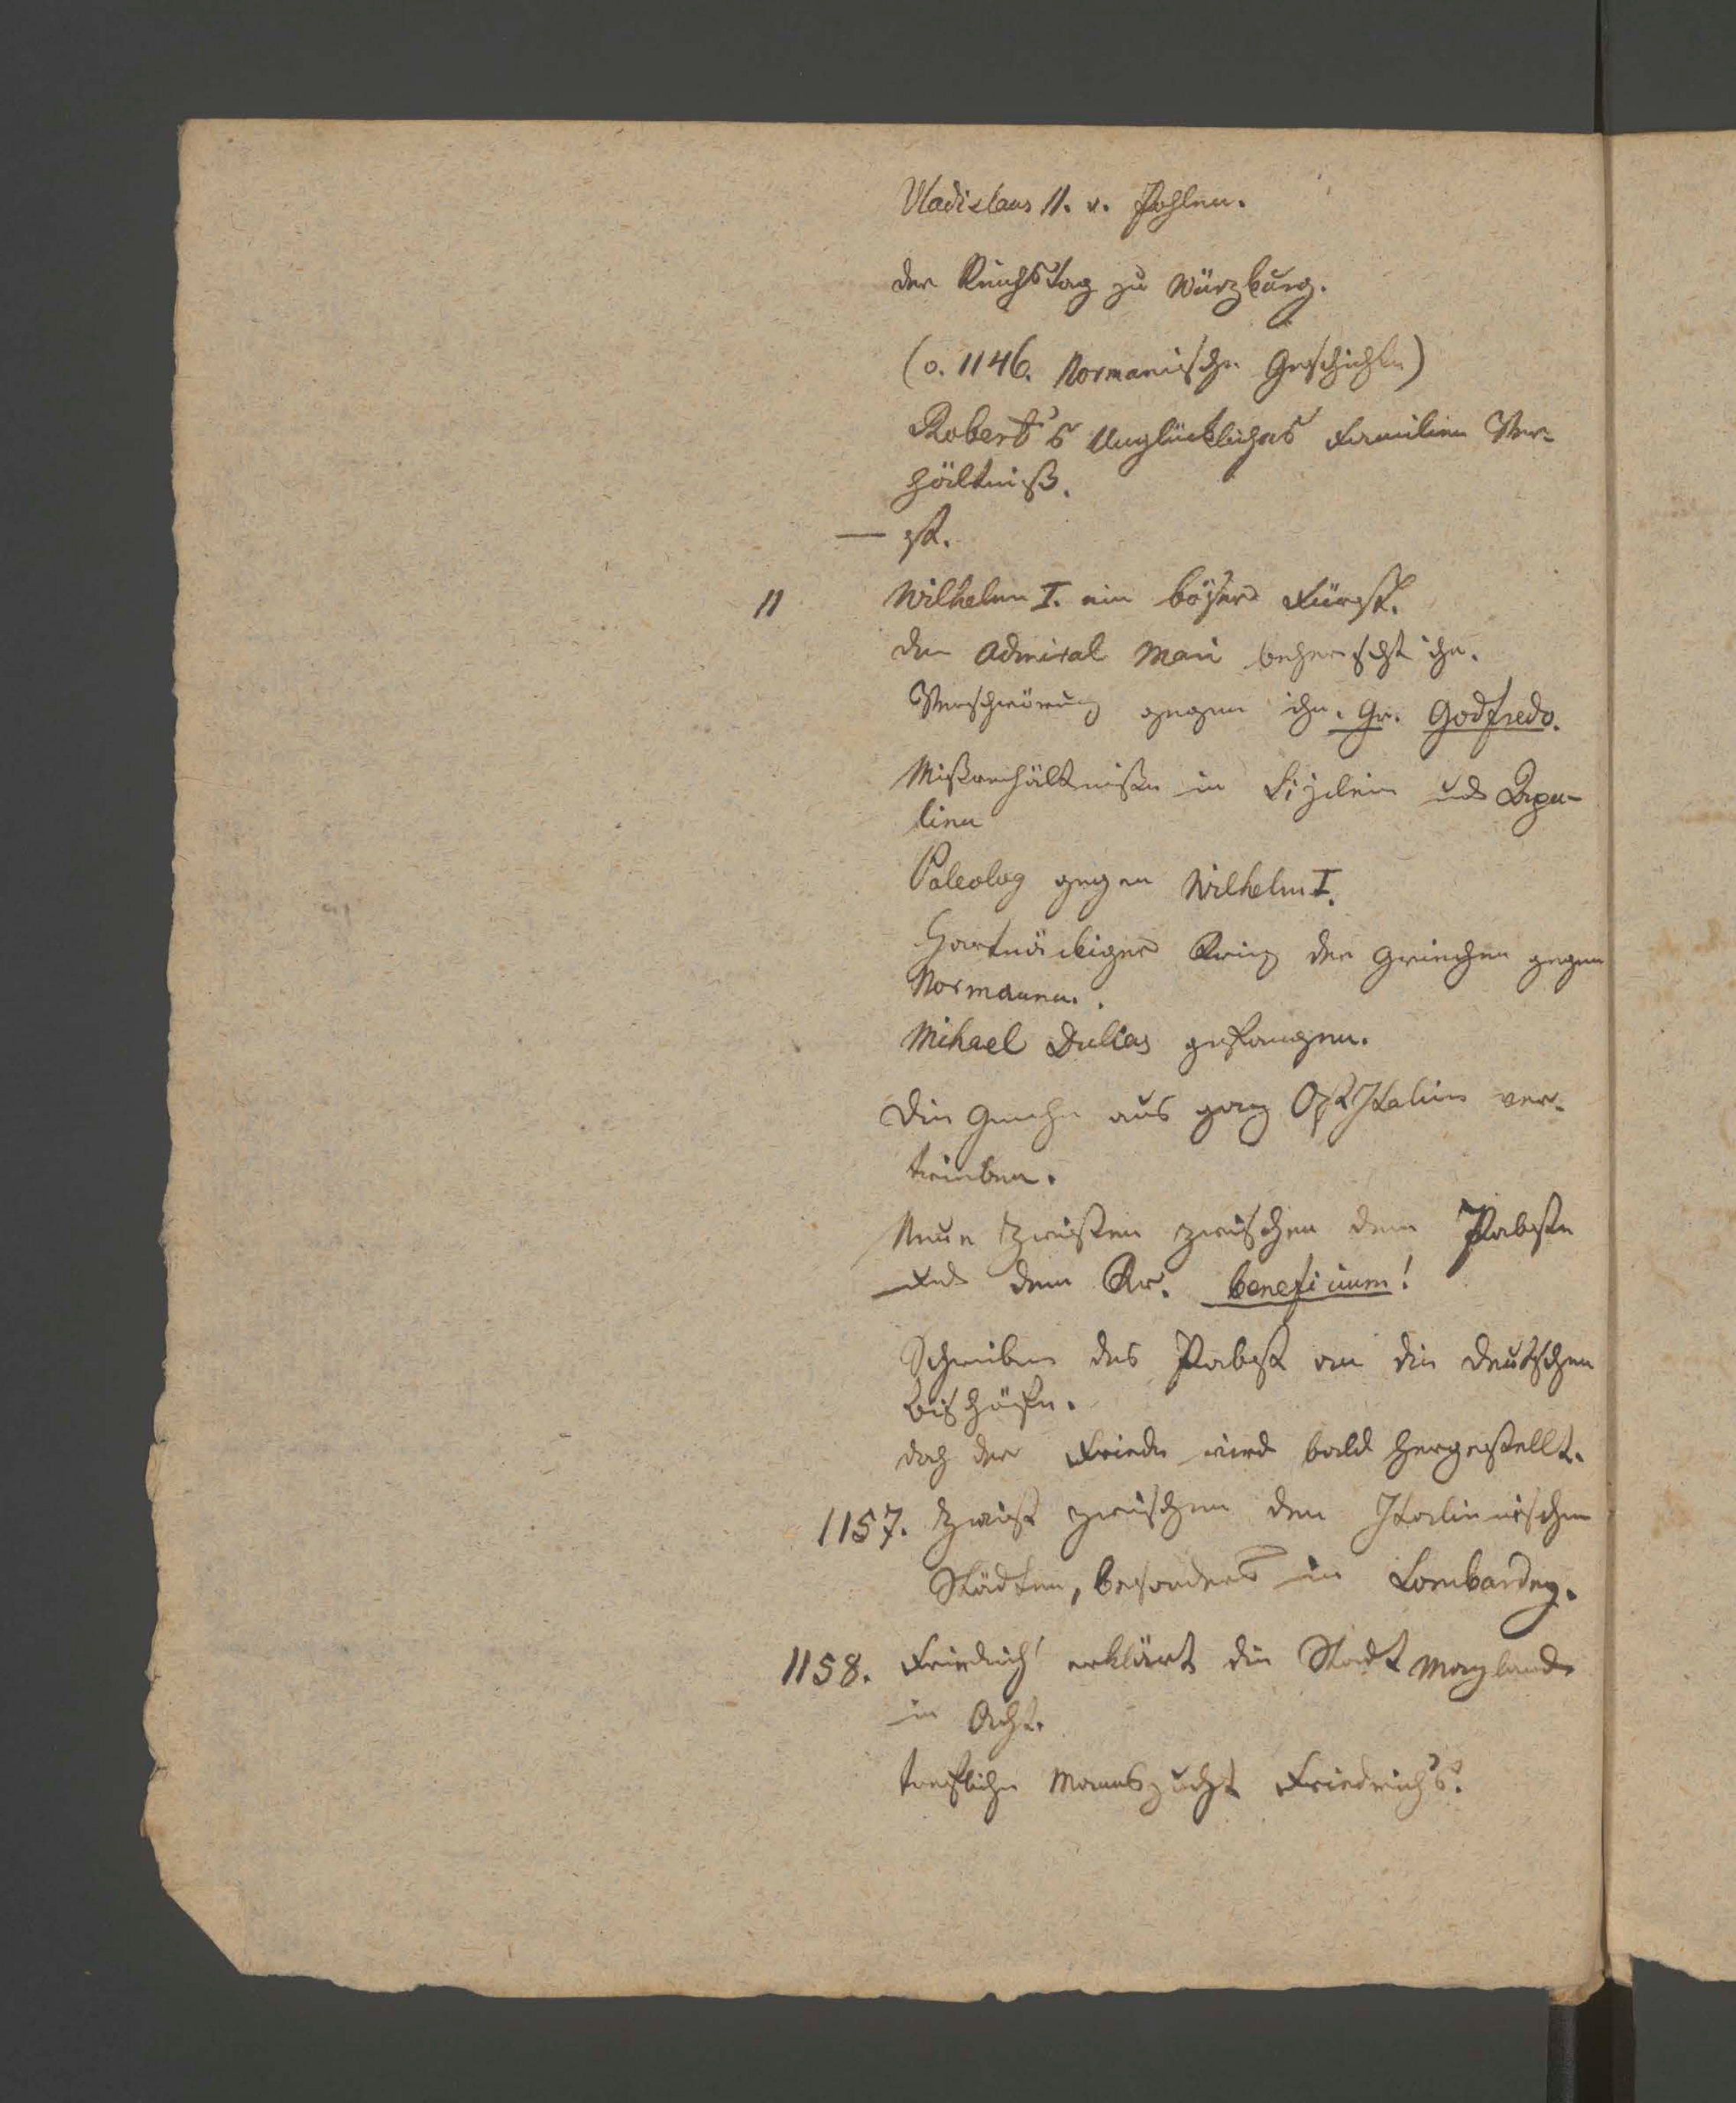 Uladislaus II. v. Pohlen.
der Reichstag zu Würzburg.
(o. 1146. Normanische Geschichte)
Robert's Unglückliches Familien Ver-
hältniß.
— st.
11 Wilhelm I. ein böser Fürst.
der Admiral Mai beherscht ihn.
Verschwörung gegen ihn. Gr. Godfredo.
Mißverhältniße in Sizilien und Apu-
lien
Paleolog gegen Wilhelm I.
Hartnäckiger Krieg der Griechen gegen
Normanen.
Mihael Dukas gefangen.
Die Grieche aus ganz OstItalien ver-
trieben.
Neue Zwisten zwischen dem Pabste
und dem Kr. beneficium!
Schreiben des Pabst an die deutschen
Bischöfe.
doch der Friede wird bald hergestellt.
1157. Zwist zwischen den Italienischen
Städten, besonders in Lombardey.
1158. Friedrich erklärt die Stadt Mayland
in Acht.
trefliche Mannszucht Friedrich's.